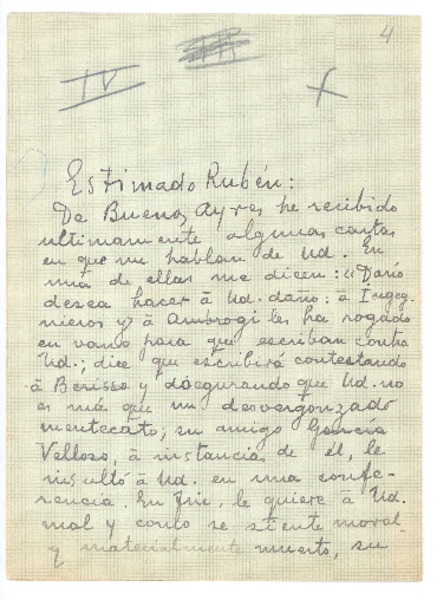 4
IV
Estimado Rubén:
De Buenos Ayres he recibido
ultimamente algunas cartas
en que me hablan de Ud. En
una de ellas me dicen: «Darío
desea hacer á Ud. daño: á Ingeg-
nieros y á Ambrogi les ha rogado
en vano para que escriban contra
Ud.; dice que escribirá contestando
á Berisso y asegurando que Ud. no
es más que un desvergonzado
mentecato; su amigo García
Velloso, á instancias de él, le
insultó á Ud. en una confe-
rencia. En fin, le quiere á Ud.
mal y como se siente moral
y materialmente muerto, su